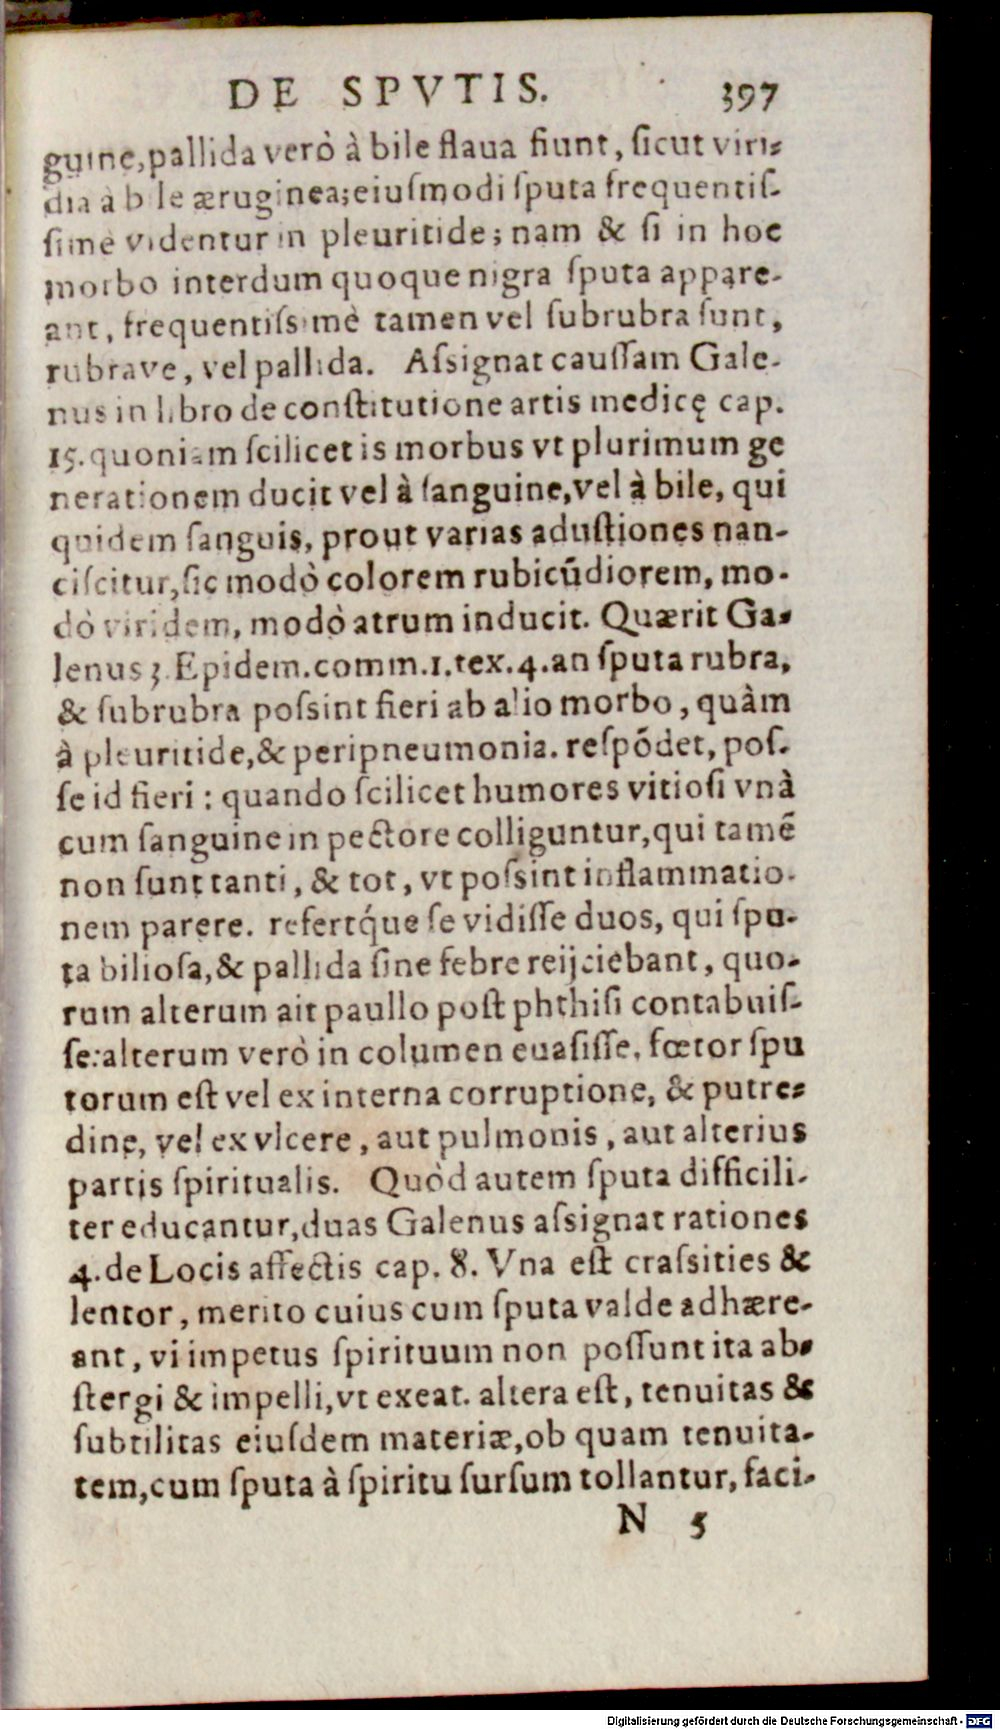 DE SPVTIS. 397
guine,pallida verò à bile flaua fiunt, ſicut viri-
dia à bile æruginea;eiuſmodi ſputa frequentiſ-
ſimè videntur in pleuritide; nam & ſi in hoc
morbo interdum quoque nigra ſputa appare-
ant, frequentiſsimè tamen vel ſubrubra ſunt,
rubrave, vel pallida. Aſsignat cauſſam Gale-
nus in libro de conſtitutione artis medicę cap.
15. quoniam ſcilicet is morbus vt plurimum ge
nerationem ducit vel à ſanguine, vel à bile, qui
quidem ſanguis, prout varias aduſtiones nan-
ciſcitur, ſic modò colorem rubicũdiorem, mo-
dò viridem, modò atrum inducit. Quærit Ga-
lenus 3. Epidem. comm.1. tex. 4. an ſputa rubra,
& ſubrubra poſsint fieri ab alio morbo, quàm
à pleuritide, & peripneumonia. reſpõdet, poſ-
ſe id fieri : quando ſcilicet humores vitioſi vnà
cum ſanguine in pectore colliguntur, qui tamẽ
non ſunt tanti, & tot, vt poſsint inflammatio-
nem parere. refertq́ue ſe vidiſſe duos, qui ſpu-
ta bilioſa, & pallida ſine febre reijciebant, quo-
rum alterum ait paullo poſt phthiſi contabuiſ-
ſe: alterum verò in columen euaſiſſe. fœtor ſpu
torum eſt vel ex interna corruptione, & putre-
dine, vel ex vlcere, aut pulmonis, aut alterius
partis ſpiritualis. Quòd autem ſputa difficili-
ter educantur, duas Galenus aſsignat rationes
4. de Locis affectis cap. 8. Vna eſt craſsities &
lentor, merito cuius cum ſputa valde adhære-
ant, vi impetus ſpirituum non poſſunt ita ab-
ſtergi & impelli, vt exeat. altera eſt, tenuitas &
ſubtilitas eiuſdem materiæ, ob quam tenuita-
tem, cum ſputa à ſpiritu ſurſum tollantur, faci-
N 5
Digitalisierung gefördert durch die Deutsche Forschungsgemeinschaft - DFG